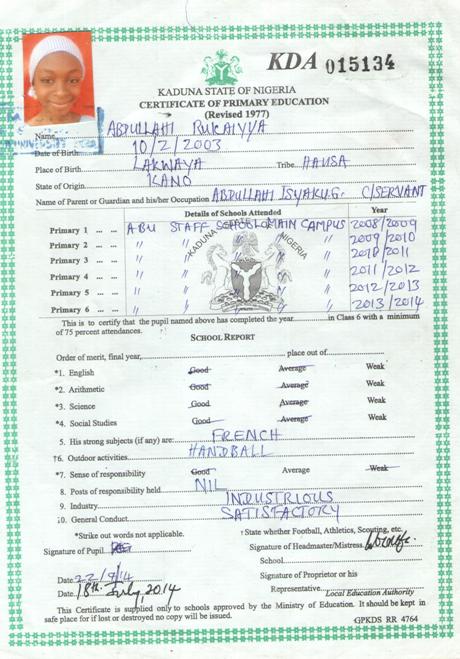 KDA 015134
KADUNA STATE OF NIGERIA
CERTIFICATE OF PRIMARY EDUCATION
(Revised 1977)
Name ABDULLAHI RUKAIYYA
Date of Birth 10/2/2003
Place of Birth LAKWAYA Tribe HAUSA
State of Origin KANO
Name of Parent or Guardian and his/her Occupation ABDULLAHI ISYAKU.G. C/SERVANT
Details of Schools Attended Year
Primary 1 ... ... ABU STAFF SCHOOL MAIN CAMPUS 2008/2009
Primary 2 ... ... " " " " " 2009/2010
Primary 3 ... ... " " " " " 2010/2011
Primary 4 ... ... " " " " " 2011/2012
Primary 5 ... ... " " " " " 2012/2013
Primary 6 ... ... " " " " " 2013/2014
KADUNA STATE OF NIGERIA
This is to certify that the pupil named above has completed the year in Class 6 with a minimum
of 75 percent attendances.
SCHOOL REPORT
Order of merit, final year, place out of
*1. English Good Average Weak
*2. Arithmetic Good Average Weak
*3. Science Good Average Weak
*4. Social Studies Good Average Weak
5. His strong subjects (if any) are: FRENCH
†6. Outdoor activities HANDBALL
*7. Sense of responsibility Good Average Weak
8. Posts of responsibility held NIL
9. Industry INDUSTRIOUS
10. General Conduct SATISFACTORY
*Strike out words not applicable. † State whether Football, Athletics, Scouting, etc.
Signature of Pupil Signature of Headmaster/Mistress
School
Date 22/9/14 Signature of Proprietor or his
Date 18th July, 2014 Representative
Local Education Authority
This Certificate is supplied only to schools approved by the Ministry of Education. It should be kept in
safe place for if lost or destroyed no copy will be issued.
GPKDS RR 4764